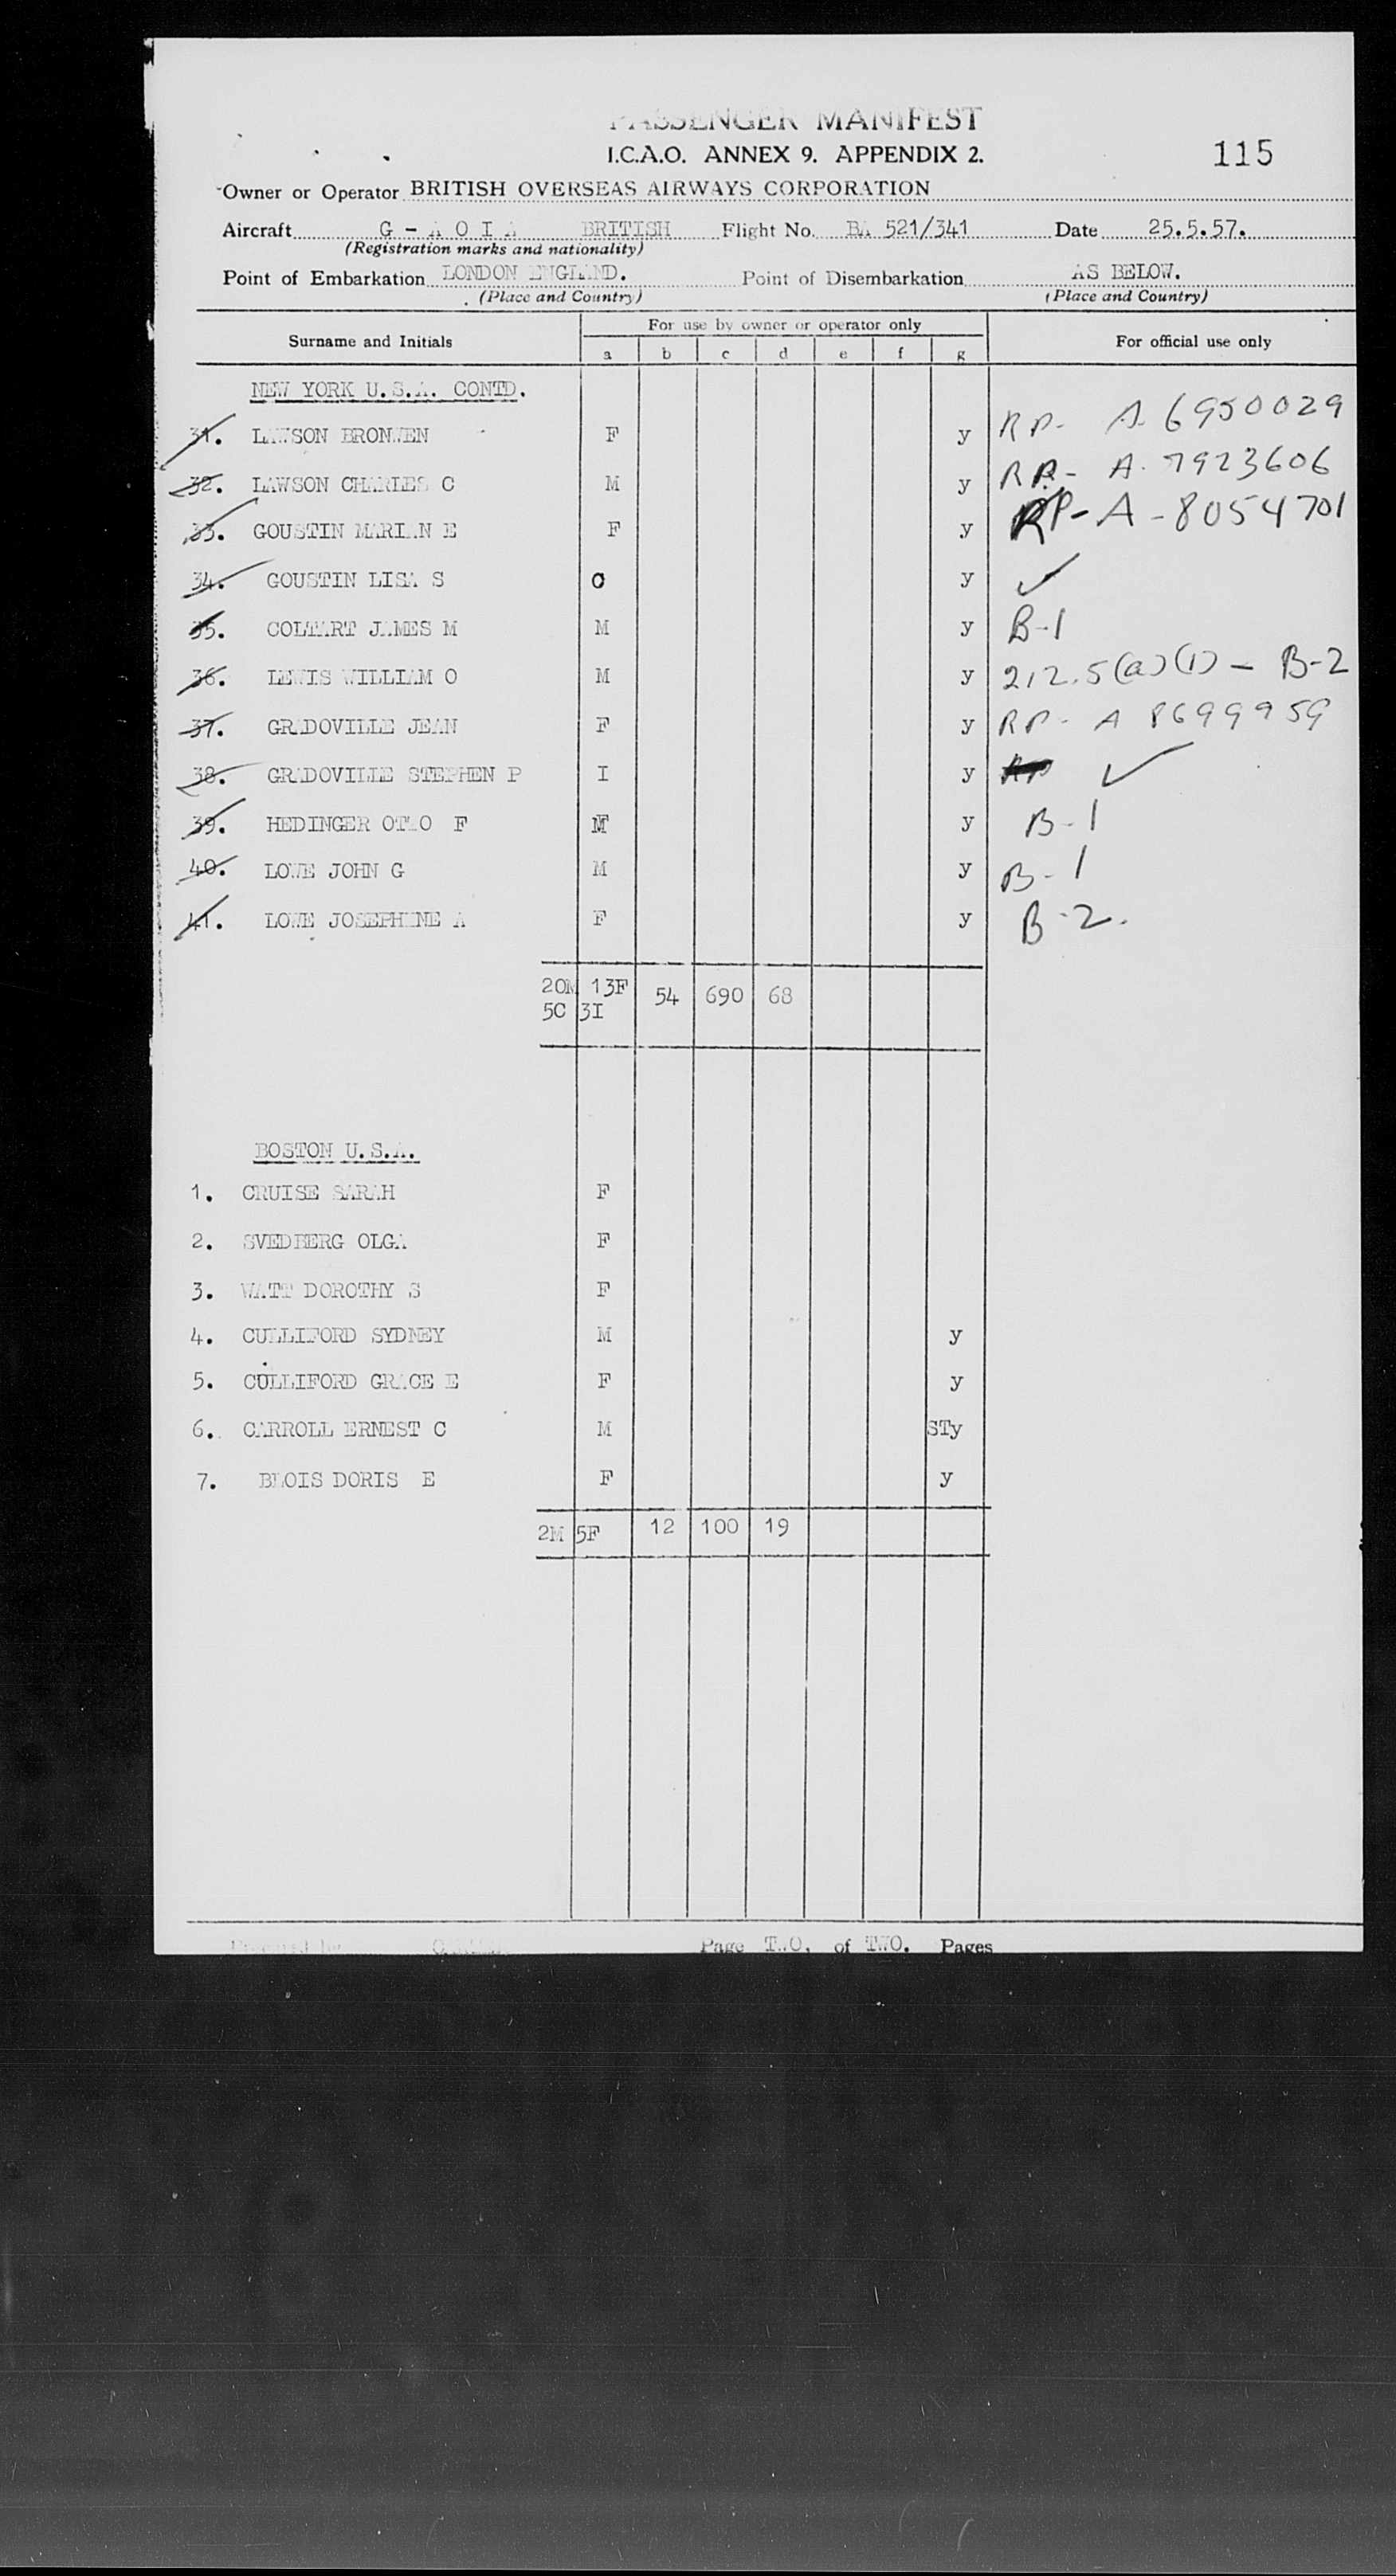 PASSENGER MANIFEST
I.C.A.O. ANNEX 9. APPENDIX 2. 115
Owner or Operator BRITISH OVERSEAS AIRWAYS CORPORATION
Aircraft G - A O I A BRITISH Flight No. BA 521/341 Date 25.5.57.
(Registration marks and nationality)
Point of Embarkation LONDON ENGLAND. Point of Disembarkation AS BELOW.
(Place and Country) (Place and Country)
Surname and Initials For use by owner or operator only For official use only
a b c d e f g
NEW YORK U.S.A. CONTD.
31. LAWSON BRONWEN F y RP- A-6950029
32. LAWSON CHARLES C M y RP- A-7923606
33. GOUSTIN MARIAN E F y RP-A-8054701
34. GOUSTIN LISA S C y ✓
35. COLTART JAMES M M y B-1
36. LEWIS WILLIAM O M y 212.5(a)(1) - B-2
37. GRADOVILLE JEAN F y RP- A 8699959
38. GRADOVILLE STEPHEN P I y RP ✓
39. HEDINGER OTTO F M y B-1
40. LOWE JOHN G M y B-1
41. LOWE JOSEPHINE A F y B-2.
20M 13F 54 690 68
5C 3I
BOSTON U.S.A.
1. CRUISE SARAH F
2. SVEDBERG OLGA F
3. WATT DOROTHY S F
4. CULLIFORD SYDNEY M y
5. CULLIFORD GRACE E F y
6. CARROLL ERNEST C M STy
7. BLOIS DORIS E F y
2M 5F 12 100 19
Prepared by Page TWO. of TWO. Pages